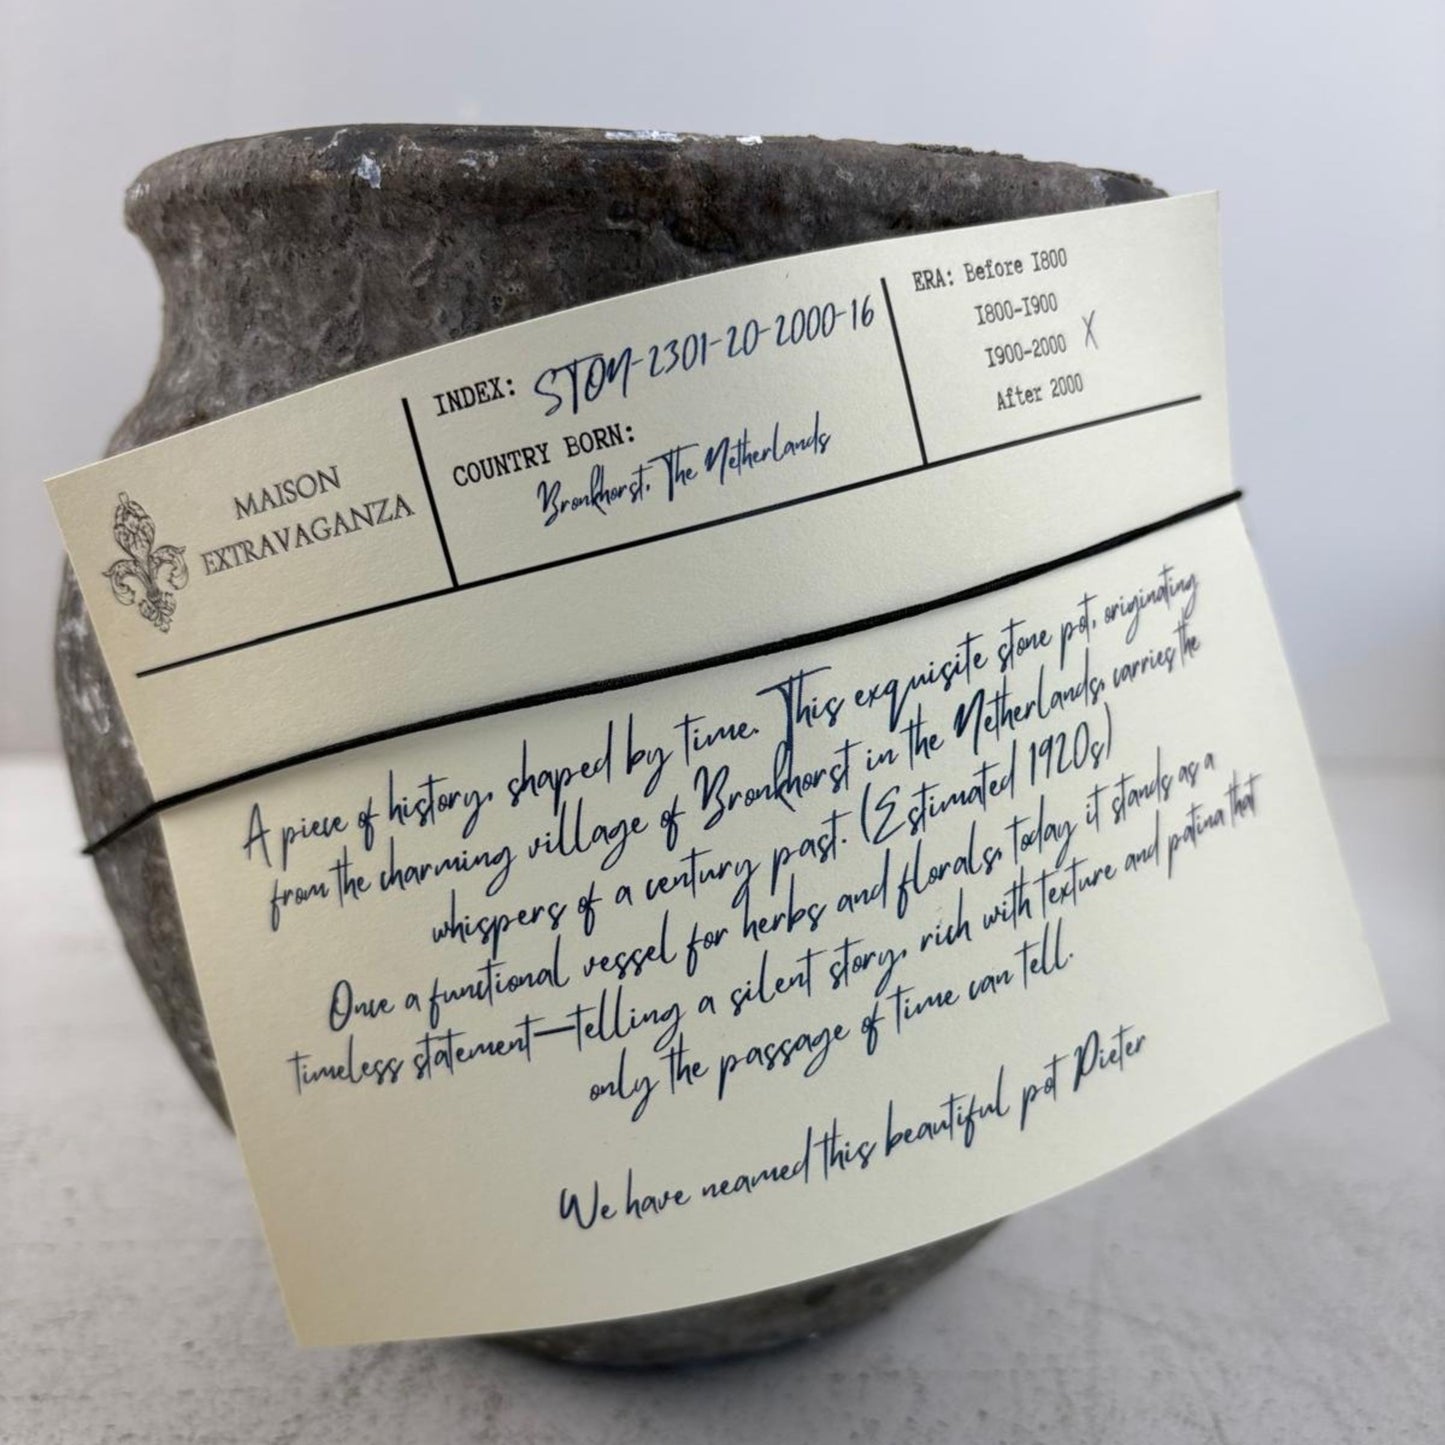 MAISON
EXTRAVAGANZA
INDEX: STON-2301-20-2000-16
COUNTRY BORN:
Bronkhorst, The Netherlands
ERA: Before 1800
1800-1900
1900-2000 X
After 2000
A piece of history, shaped by time. This exquisite stone pot, originating
from the charming village of Bronkhorst in the Netherlands, carries the
whispers of a century past. (Estimated 1920s)
Once a functional vessel for herbs and florals, today it stands as a
timeless statement—telling a silent story, rich with texture and patina that
only the passage of time can tell.
We have neamed this beautiful pot Pieter